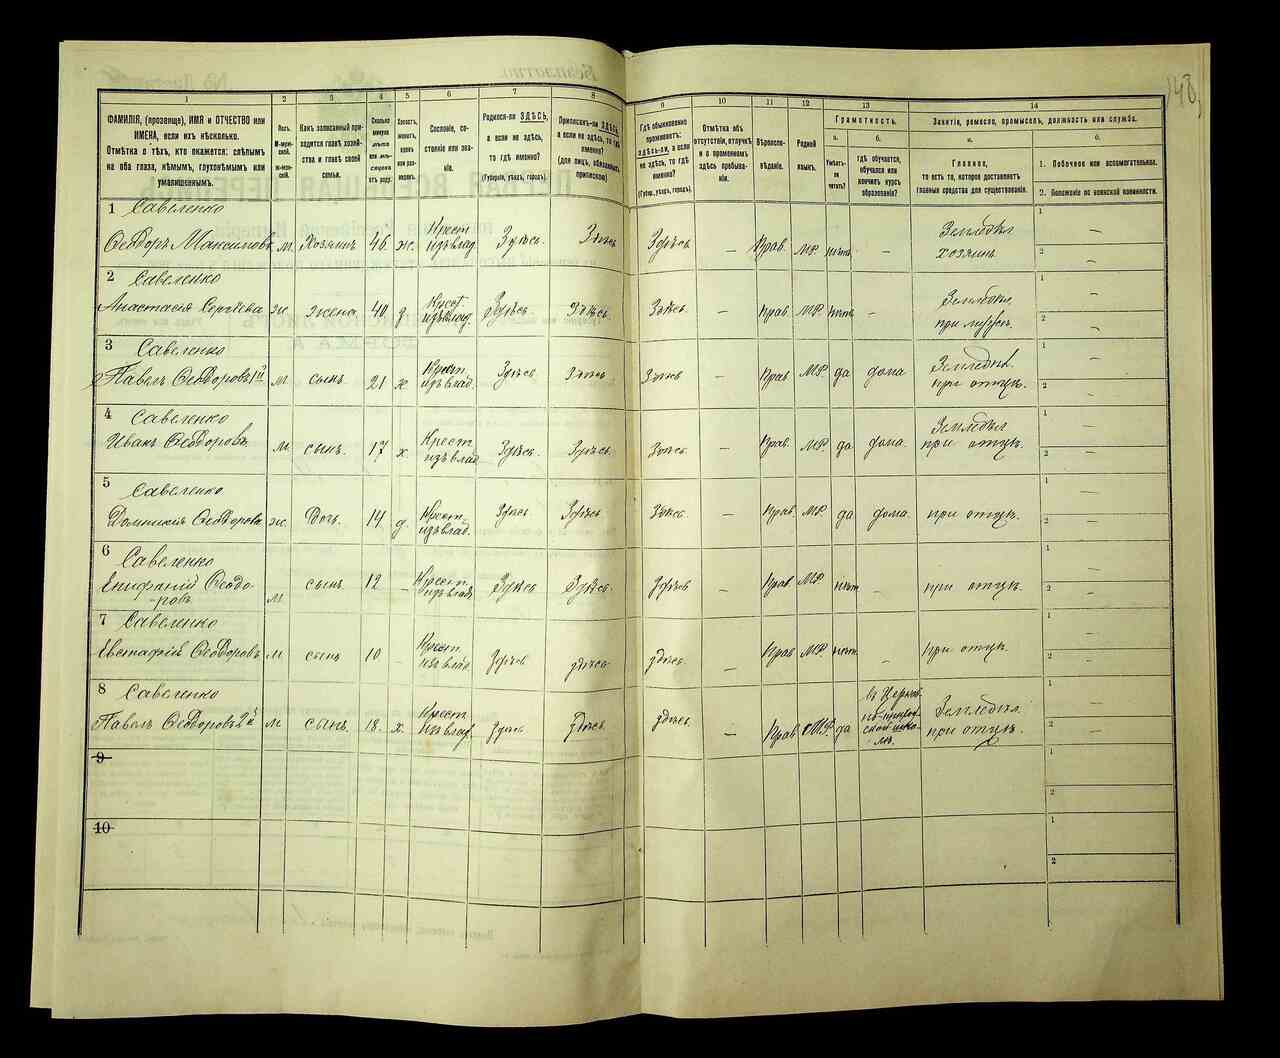 148
1
2
3
4
5
6
7
8
9
10
11
12
13
14
ФАМИЛІЯ, (прозвище), ИМЯ и ОТЧЕСТВО или
ИМЕНА, если ихъ нѣсколько.
Отмѣтка о тѣхъ, кто окажется: слѣпымъ
на оба глаза, нѣмымъ, глухонѣмымъ или
умалишеннымъ.
Полъ.
М-муж-
ской.
Ж-жен-
ской.
Какъ записанный при-
ходится главѣ хозяй-
ства и главѣ своей
семьи.
Сколько
минуло
лѣтъ
отъ роду.
Холостъ,
женатъ,
вдовъ
или раз-
веденъ.
Сословіе, со-
стояніе или зва-
ніе.
Родился-ли ЗДѢСЬ,
а если не здѣсь,
то гдѣ именно?
(Губернія, уѣздъ, городъ).
Приписанъ-ли ЗДѢСЬ,
а если не здѣсь, то гдѣ
именно?
(для лицъ, обязанныхъ
припискою)
Гдѣ обыкновенно
проживаетъ:
здѣсь-ли, а если
не здѣсь, то гдѣ
именно?
(Губерн., уѣздъ, городъ).
Отмѣтка объ
отсутствіи, отлучкѣ
и о временномъ
здѣсь пребыва-
ніи.
Вѣроиспо-
вѣданіе.
Родной
языкъ.
Грамотность.
а.
Умѣетъ-
ли
читать?
б.
гдѣ обучается,
обучался или
кончилъ курсъ
образованія?
Занятіе, ремесло, промыселъ, должность или служба.
а.
Главное,
то есть то, которое доставляетъ
главныя средства для существованія.
б.
1. Побочное или вспомогательное.
2. Положеніе по воинской повинности.
1 Савеленко
Ѳеодоръ Максимовъ м. Хозяинъ 46 ж. Крест. изъ влад. Здѣсь. Здѣсь Здѣсь — Прав. МР. нѣтъ — Земледѣл. хозяинъ 1 — 2 —
2 Савеленко
Анастасія Сергѣева ж. жена. 40 з. Крест. изъ влад. Здѣсь. Здѣсь. Здѣсь. — Прав. МР. нѣтъ — Земледѣл. при мужѣ. 1 — 2 —
3 Савеленко
Павелъ Ѳеодоровъ 1й м. сынъ. 21 х. Крест. изъ влад. Здѣсь Здѣсь Здѣсь — Прав МР. да дома Земледѣл. при отцѣ. 1 — 2 —
4 Савеленко
Иванъ Ѳеодоровъ м. сынъ. 17 х. Крест изъ влад Здѣсь. Здѣсь. Здѣсь. — Прав. МР. да дома. Земледѣл при отцѣ. 1 — 2 —
5 Савеленко
Домникія Ѳеодорова ж. Дочь. 14 д. Крест. изъ влад. Здѣсь Здѣсь. Здѣсь. — Прав. МР. да дома. при отцѣ. 1 — 2 —
6 Савеленко
Епифаній Ѳеодо-
ровъ м сынъ 12 — Крест. изъ влад. Здѣсь Здѣсь. Здѣсь — Прав. МР. нѣт — при отцѣ. 1 — 2 —
7 Савеленко
Евстафій Ѳеодоровъ м сынъ 10 — Крест. изъ влад Здѣсь здѣсь. здѣсь. — Прав МР. нѣт. — при отцѣ. 1 — 2 —
8 Савеленко
Павелъ Ѳеодоровъ 2й м сынъ. 18. х. Крест изъ влад. Здѣсь Здѣсь. здѣсь. — Прав. МР. да въ Церков-
но-приход-
ской шко-
лѣ. Земледѣл. при отцѣ. 1 — 2 —
9 1 2
10 1 2